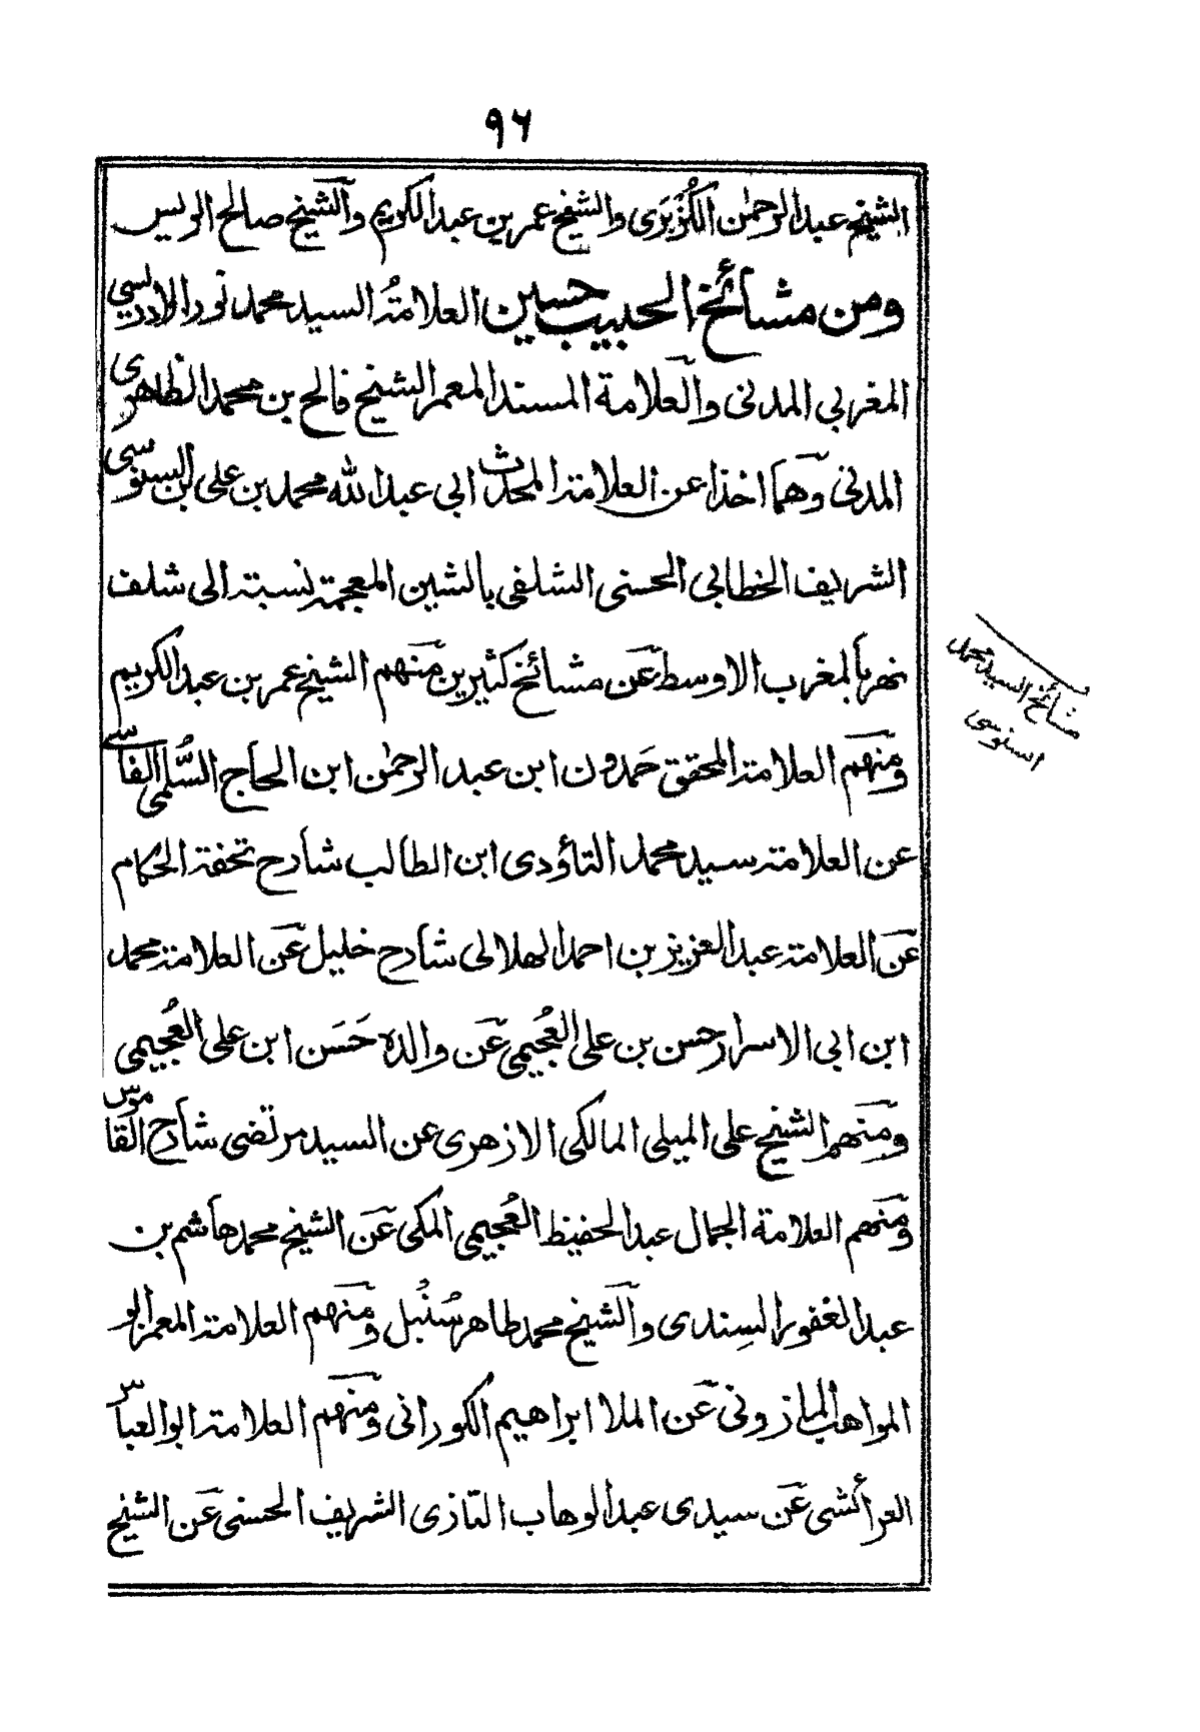 ٩٦
الشيخ عبدالرحمٰن الكُزْبَرى والشيخ عمر بن عبدالكريم والشيخ صالح الريس
ومن مشائخ الحبيب حسين العلامة السيد محمد نور الادريسي
المغربي المدنى والعلامة المسند المعمر الشيخ فالح بن محمد الظاهرى
المدنى وهما اخذا عن العلامة المحدث ابي عبدالله محمد بن على ابن السنوسى
الشريف الخطابي الحسنى الشلفى بالشين المعجمة نسبة الى شلف
نهر بالمغرب الاوسط عن مشائخ كثيرين منهم الشيخ عمر بن عبدالكريم
ومنهم العلامة المحقق حَمدون ابن عبدالرحمٰن ابن الحاج السُّلمى الفاسى
عن العلامة سيد محمد التاؤدى ابن الطالب شارح تحفة الحكام
عن العلامة عبدالعزيز بن احمد الهلالى شارح خليل عن العلامة محمد
ابن ابى الاسرار حسن بن على العُجيمى عن والده حَسَن ابن على العُجيمى
ومنهم الشيخ على الميلى المالكى الازهرى عن السيد مرتضى شارح القاموس
ومنهم العلامة الجمال عبدالحفيظ العُجيمى المكى عن الشيخ محمد هاشم بن
عبدالغفور السِندى والشيخ محمد طاهر سُنْبُل ومنهم العلامة المعمر ابو
المواهب المازونى عن الملا ابراهيم الكورانى ومنهم العلامة ابو العباس
العرائشى عن سيدى عبدالوهاب التازى الشريف الحسنى عن الشيخ
مشائخ السيد محمد
السنوسى